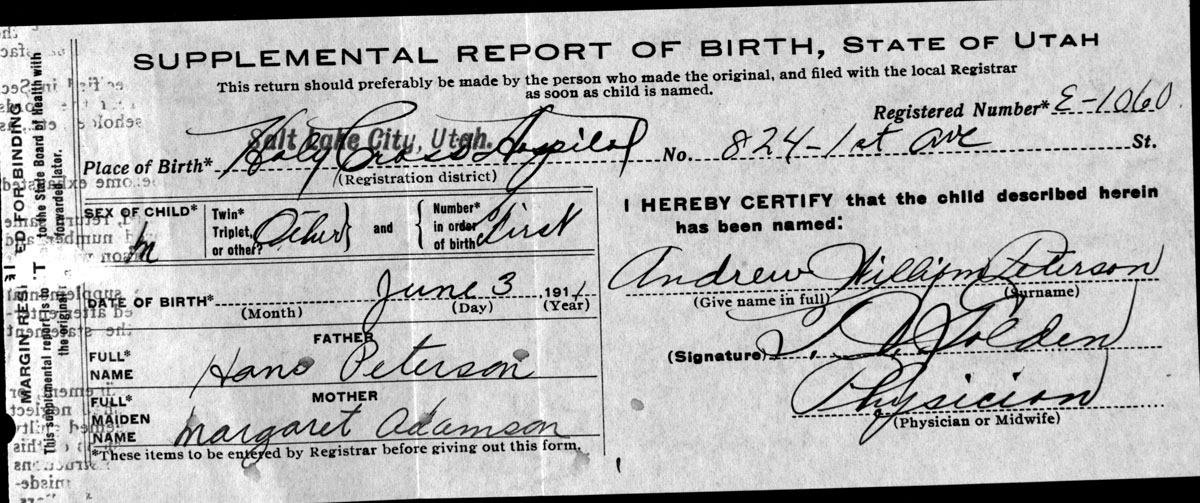 SUPPLEMENTAL REPORT OF BIRTH, STATE OF UTAH
This return should preferably be made by the person who made the original, and filed with the local Registrar
as soon as child is named.
Registered Number* E-1060
Salt Lake City, Utah.
Place of Birth* Holy Cross Hospital No. 824-1st ave St.
(Registration district)
SEX OF CHILD* m
Twin* Triplet, or other? Other } and { Number* in order of birth First
DATE OF BIRTH* June 3 1911
(Month) (Day) (Year)
FATHER
FULL* NAME Hans Peterson
MOTHER
FULL* MAIDEN NAME Margaret Adamson
*These items to be entered by Registrar before giving out this form.
I HEREBY CERTIFY that the child described herein
has been named:
Andrew William Peterson
(Give name in full) (Surname)
(Signature) Golden
Physician
(Physician or Midwife)
MARGIN RES
ED FOR BINDING
This supplemental report is to
to the State Board of Health with
the original
forwarded later.